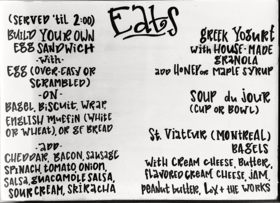 Eats
(SERVED 'til 2:00)
BUILD YOUR OWN
EGG SANDWICH
-with-
EGG (OVER-EASY OR
SCRAMBLED)
-ON-
BAGEL, BISCUIT, WRAP,
ENGLISH MUFFIN (WHITE
OR WHEAT), OR GF BREAD
-add-
CHEDDAR, BACON, SAUSAGE
SPINACH, TOMATO, ONION,
SALSA, GUACAMOLE SALSA,
SOUR CREAM, SRIRACHA
GREEK YOGURT
with HOUSE-MADE
GRANOLA
add HONEY or MAPLE SYRUP
SOUP du JOUR
(CUP or BOWL)
St. Viateur (MONTREAL)
BAGELS
With CREAM CHEESE, BUTTER,
FLAVORED CREAM CHEESE, JAM,
PEANUT BUTTER, LOX + THE WORKS